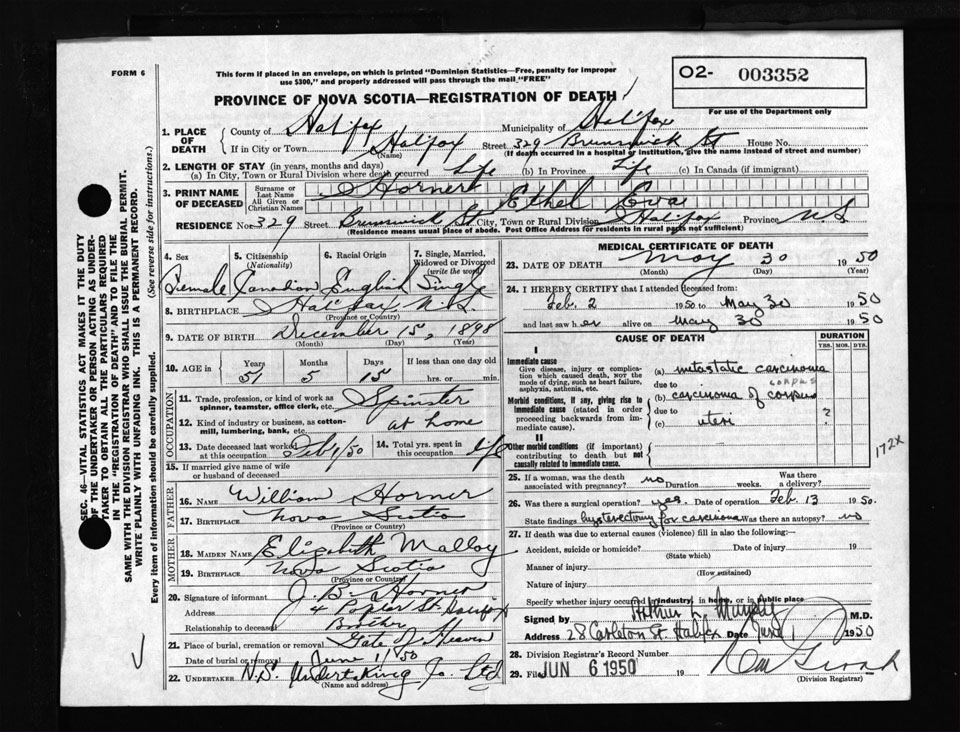 FORM 6
This form if placed in an envelope, on which is printed "Dominion Statistics—Free, penalty for improper
use $300," and properly addressed will pass through the mail "FREE"
O2- 003352
For use of the Department only
PROVINCE OF NOVA SCOTIA—REGISTRATION OF DEATH
SEC. 46—VITAL STATISTICS ACT MAKES IT THE DUTY
OF THE UNDERTAKER OR PERSON ACTING AS UNDER-
TAKER TO OBTAIN ALL THE PARTICULARS REQUIRED
IN THE "REGISTRATION OF DEATH" AND TO FILE THE
SAME WITH THE DIVISION REGISTRAR WHO SHALL ISSUE THE BURIAL PERMIT.
WRITE PLAINLY WITH UNFADING INK. THIS IS A PERMANENT RECORD.
Every item of information should be carefully supplied. (See reverse side for instructions.)
1. PLACE OF DEATH
County of Halifax Municipality of Halifax
If in City or Town Halifax Street 329 Brunswick St House No.
(Name) (If death occurred in a hospital or institution, give the name instead of street and number)
2. LENGTH OF STAY (in years, months and days)
(a) In City, Town or Rural Division where death occurred Life (b) In Province Life (c) In Canada (if immigrant)
3. PRINT NAME OF DECEASED
Surname or Last Name Horner
All Given or Christian Names Ethel Eva
RESIDENCE No 329 Street Brunswick St City, Town or Rural Division Halifax Province N.S
(Residence means usual place of abode. Post Office Address for residents in rural parts not sufficient)
4. Sex 5. Citizenship (Nationality) 6. Racial Origin 7. Single, Married, Widowed or Divorced (write the word)
Female Canadian English Single
8. BIRTHPLACE Halifax N.S.
(Province or Country)
9. DATE OF BIRTH December 15, 1898
(Month) (Day) (Year)
10. AGE in Years Months Days If less than one day old
51 5 15 hrs. or min.
OCCUPATION
11. Trade, profession, or kind of work as spinner, teamster, office clerk, etc. Spinster
12. Kind of industry or business, as cotton-mill, lumbering, bank, etc. at home
13. Date deceased last worked at this occupation Feb 1/50 14. Total yrs. spent in this occupation Life
15. If married give name of wife or husband of deceased
FATHER
16. NAME William Horner
17. BIRTHPLACE Nova Scotia
(Province or Country)
MOTHER
18. MAIDEN NAME Elizabeth Malloy
19. BIRTHPLACE Nova Scotia
(Province or Country)
20. Signature of informant J. B. Horner
Address 4 Poplar St. Halifax
Relationship to deceased Brother
21. Place of burial, cremation or removal Gate of Heaven
Date of burial or removal June 1/50
22. UNDERTAKER N.S. Undertaking Co. Ltd
(Name and address)
MEDICAL CERTIFICATE OF DEATH
23. DATE OF DEATH May 30 1950
(Month) (Day) (Year)
24. I HEREBY CERTIFY that I attended deceased from:
Feb. 2 1950 to May 30 1950
and last saw her alive on May 30 1950
CAUSE OF DEATH
DURATION
YRS. MOS. DYS.
I
Immediate cause
Give disease, injury or complication which caused death, NOT the mode of dying, such as heart failure, asphyxia, asthenia, etc.
(a) metastatic carcinoma
due to corpus
Morbid conditions, if any, giving rise to immediate cause (stated in order proceeding backwards from immediate cause).
(b) carcinoma of corpus
due to
(c) uteri 2
II
Other morbid conditions (if important) contributing to death but not causally related to immediate cause.
172X
25. If a woman, was the death associated with pregnancy? no Duration weeks. Was there a delivery?
26. Was there a surgical operation? yes. Date of operation Feb. 13 1950.
State findings hysterectomy for carcinoma Was there an autopsy? no
27. If death was due to external causes (violence) fill in also the following:
Accident, suicide or homicide? Date of injury 19
(State which)
Manner of injury
(How sustained)
Nature of injury
Specify whether injury occurred in industry, in home, or in public place
Signed by Arthur L. Murphy M.D.
Address 28 Carleton St. Halifax Date June 1 1950
28. Division Registrar's Record Number
29. Filed JUN 6 1950 19
(Division Registrar)